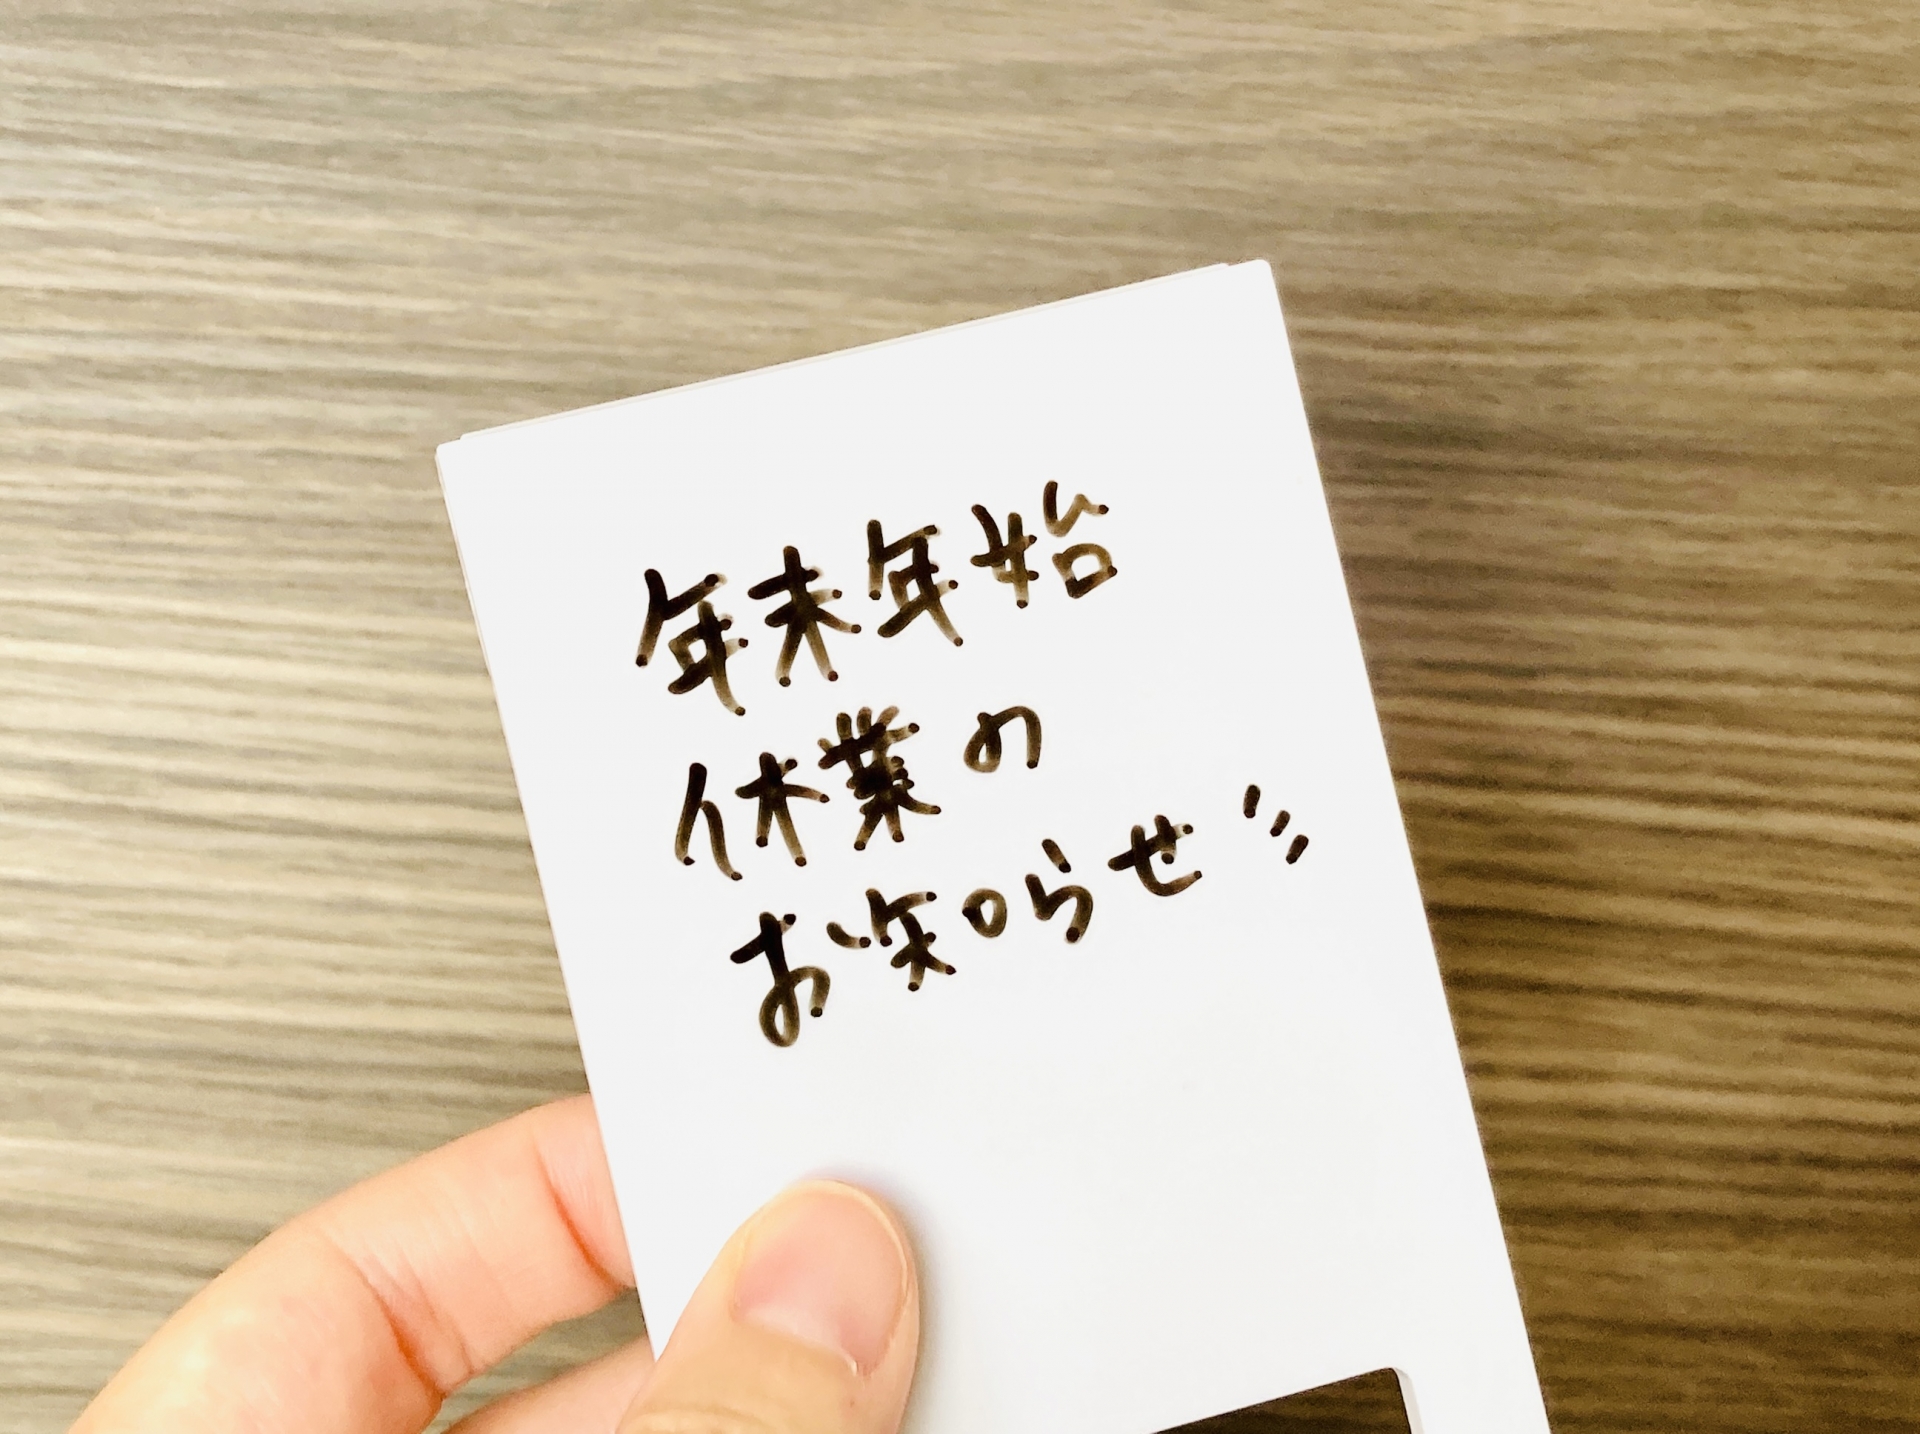 年末年始
休業の
お知らせ